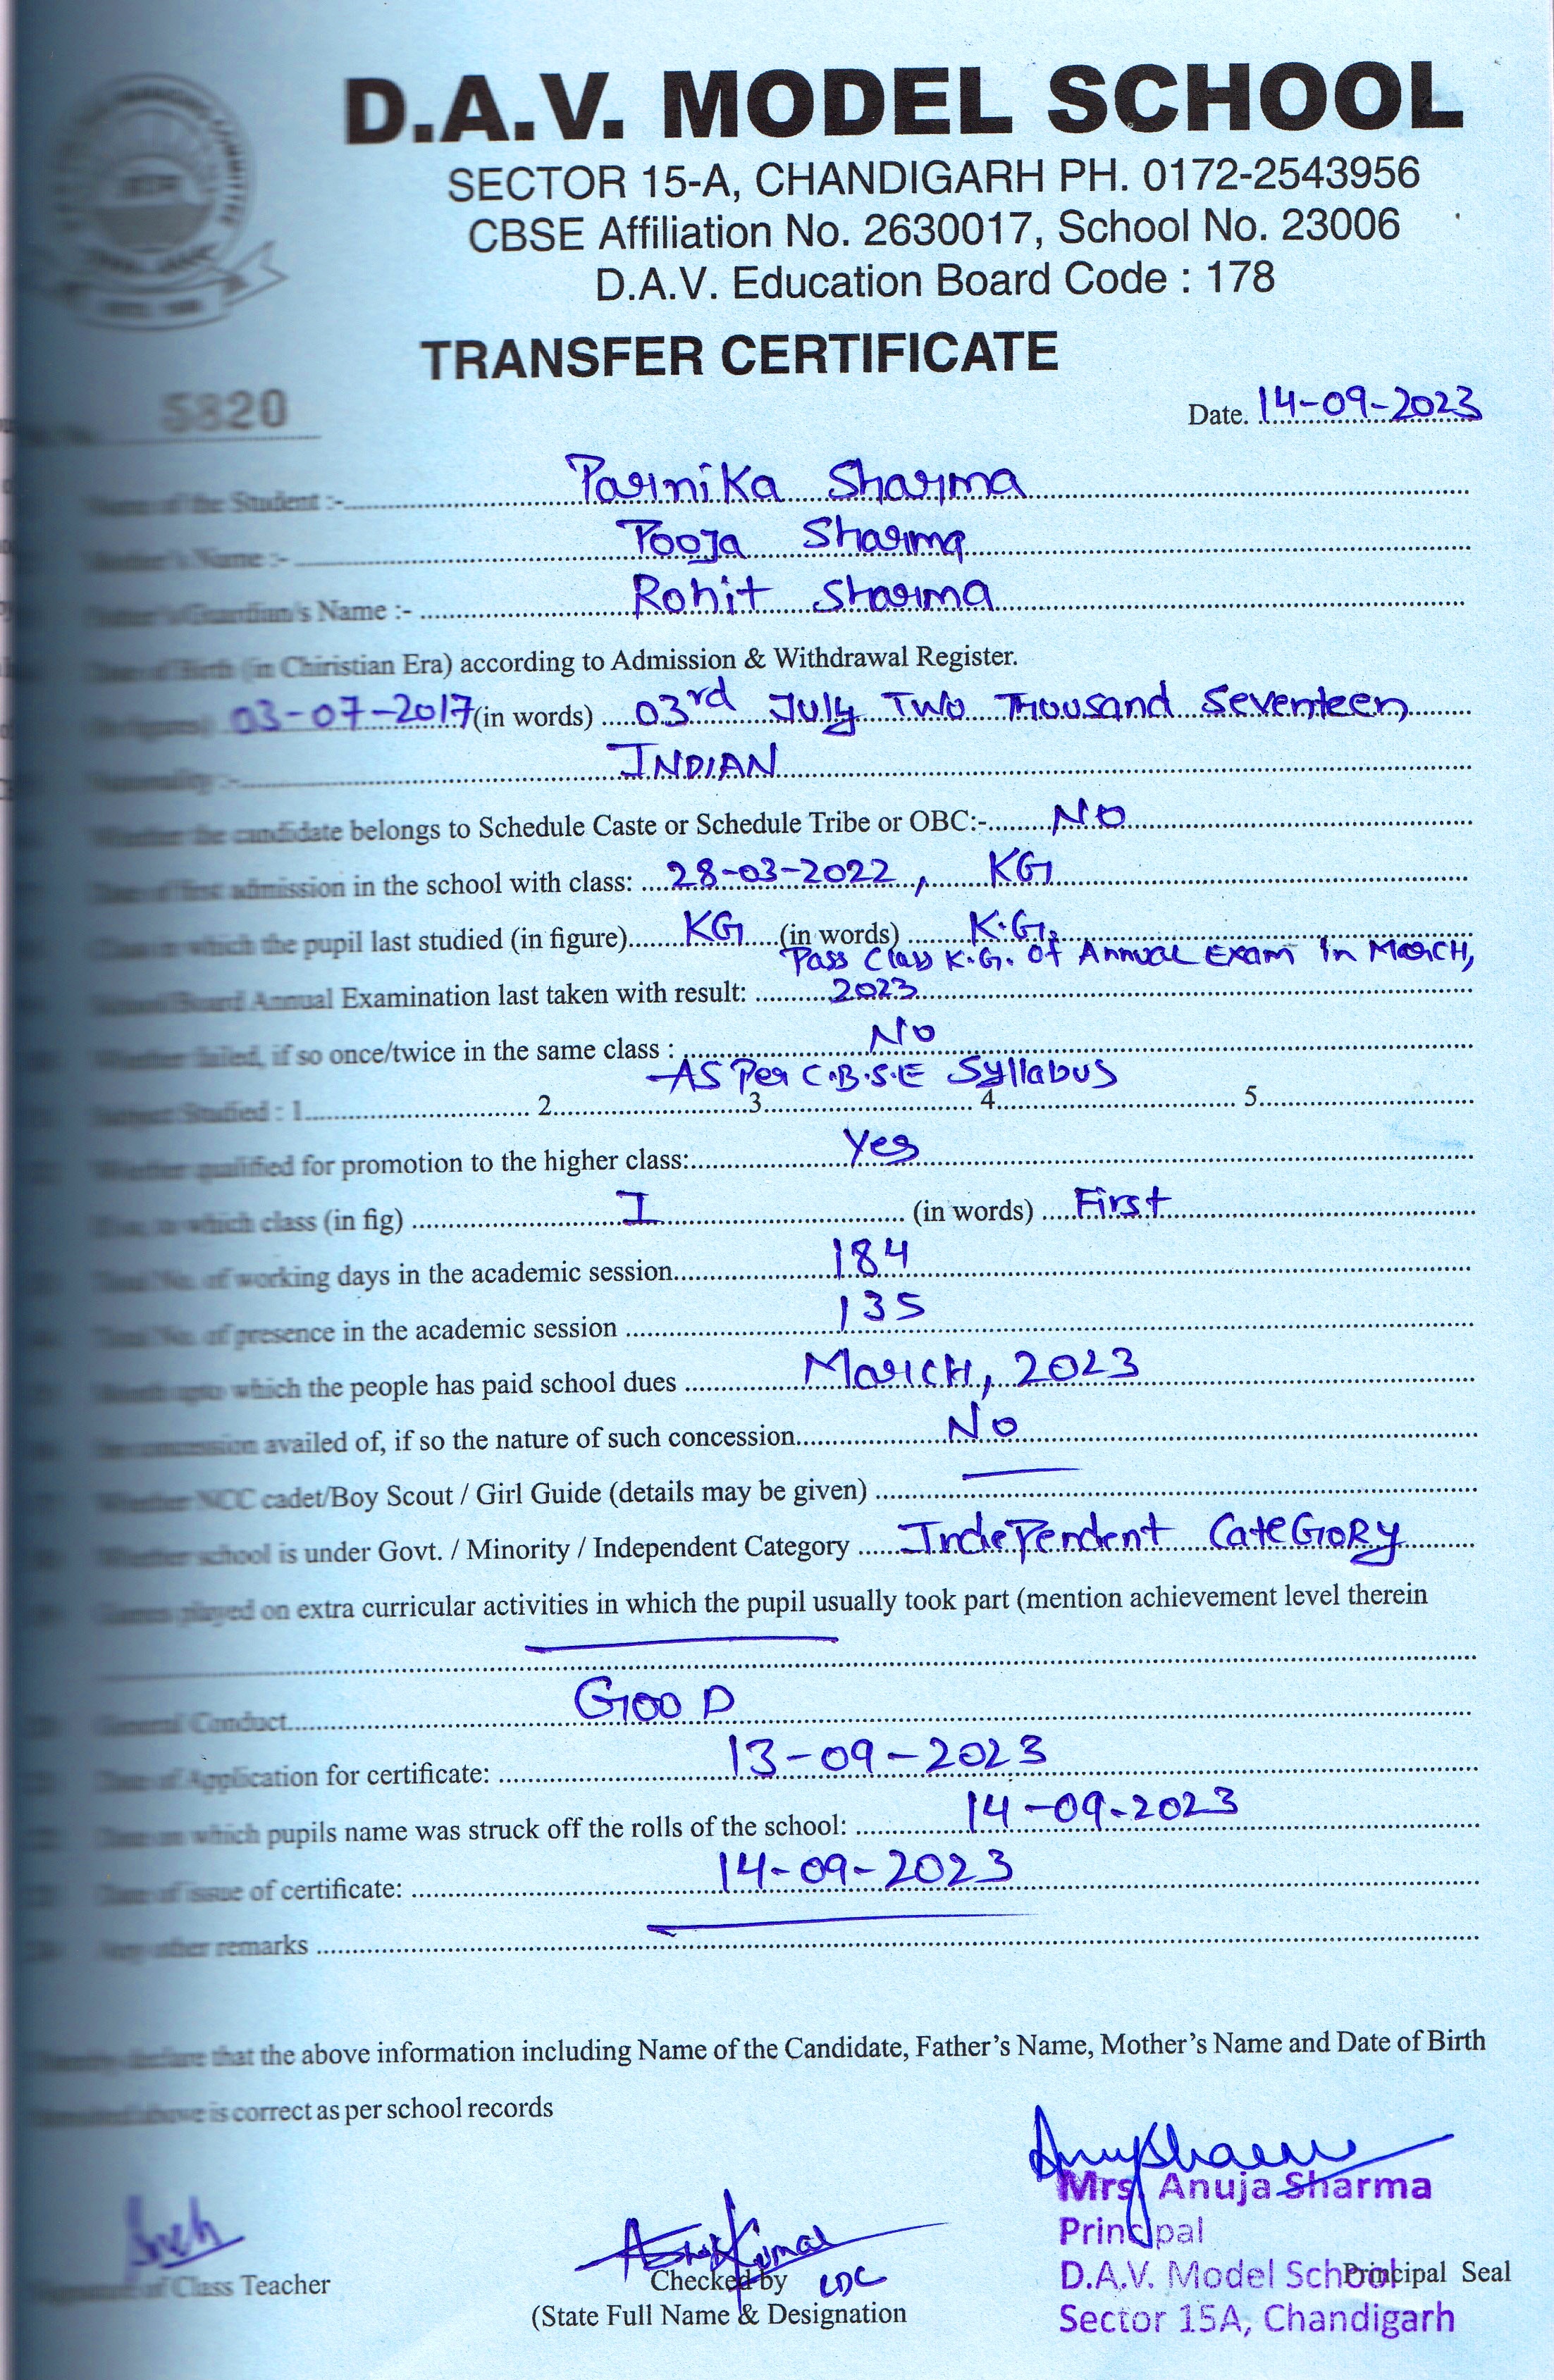 D.A.V. MODEL SCHOOL
SECTOR 15-A, CHANDIGARH PH. 0172-2543956
CBSE Affiliation No. 2630017, School No. 23006
D.A.V. Education Board Code : 178
TRANSFER CERTIFICATE
5820
Date. 14-09-2023
Name of the Student :- Parnika Sharma
Mother's Name :- Pooja Sharma
Father's/Guardian's Name :- Rohit Sharma
Date of Birth (in Chiristian Era) according to Admission & Withdrawal Register.
03-07-2017 (in words) 03rd July Two Thousand Seventeen
Nationality :- INDIAN
Whether the candidate belongs to Schedule Caste or Schedule Tribe or OBC:- NO
Date of first admission in the school with class: 28-03-2022, KG
Class in which the pupil last studied (in figure) KG (in words) K.G.
Pass Class K.G. of Annual Exam in March,
School/Board Annual Examination last taken with result: 2023
Whether failed, if so once/twice in the same class : No
As Per C.B.S.E Syllabus
Subject Studied : 1 2 3 4 5
Whether qualified for promotion to the higher class: Yes
If so, in which class (in fig) I (in words) First
Total No. of working days in the academic session 184
Total No. of presence in the academic session 135
Month upto which the people has paid school dues March, 2023
availed of, if so the nature of such concession No
Whether NCC cadet/Boy Scout / Girl Guide (details may be given)
Whether school is under Govt. / Minority / Independent Category Independent Category
Games played on extra curricular activities in which the pupil usually took part (mention achievement level therein
General Conduct GOOD
Date of Application for certificate: 13-09-2023
Date on which pupils name was struck off the rolls of the school: 14-09-2023
Date of issue of certificate: 14-09-2023
Any other remarks
declare that the above information including Name of the Candidate, Father's Name, Mother's Name and Date of Birth
above is correct as per school records
Mrs. Anuja Sharma
Principal
D.A.V. Model School
Sector 15A, Chandigarh
Principal Seal
of Class Teacher
Ashok Kumar
Checked by LDC
(State Full Name & Designation